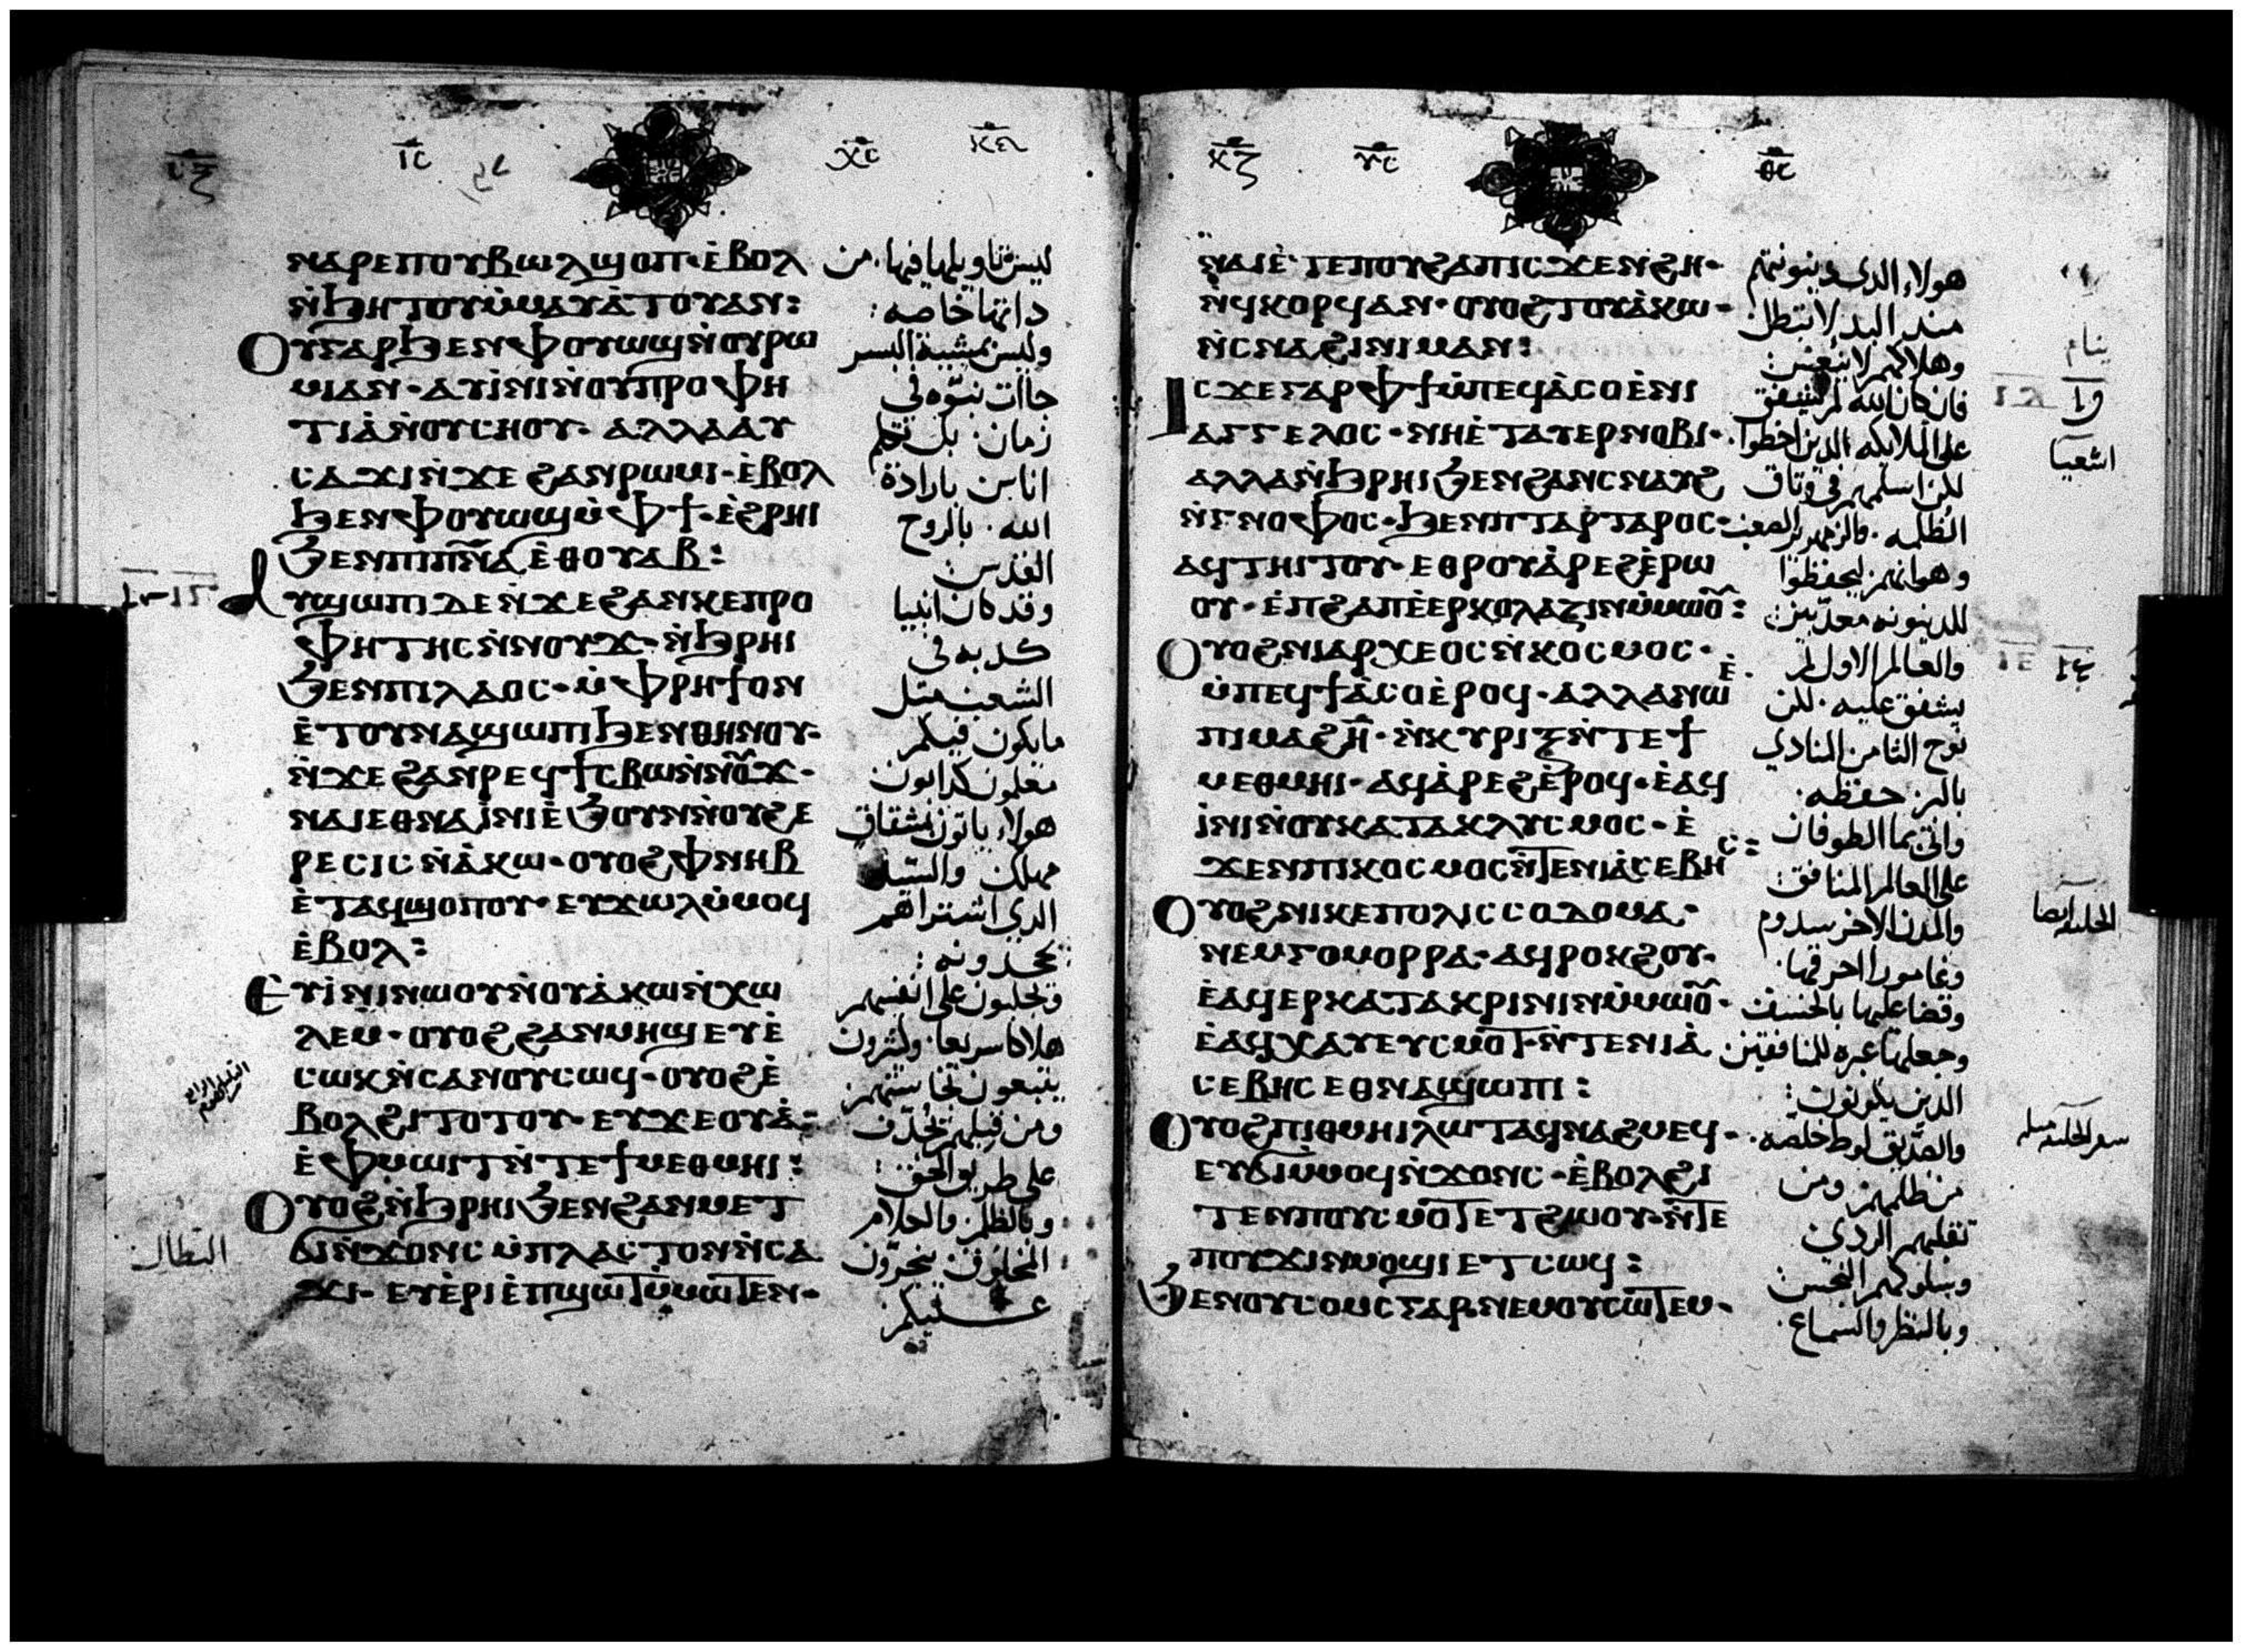 ⲓ̅ⲥ̅
ⲭ̅ⲥ̅
ⲛⲁⲣⲉⲡⲟⲩⲃⲱⲗϣⲟⲡ· ⲉ̀ⲃⲟⲗ
ⲛ̀ϧⲏⲧⲟⲩⲙ̀ⲙⲁⲩⲁ̀ⲧⲟⲩⲁⲛ:
ⲟⲩⲅⲁⲣϧⲉⲛⲫⲟⲩⲱϣⲛ̀ⲟⲩⲣⲱ
ⲙⲓⲁⲛ· ⲁⲩⲓ̀ⲛⲓⲛ̀ⲟⲩⲡⲣⲟⲫⲏ
ⲧⲓⲁ̀ⲛ̀ⲟⲩⲥⲏⲟⲩ· ⲁⲗⲗⲁⲁⲩ
ⲥⲁϫⲓⲛ̀ϫⲉ ϩⲁⲛⲣⲱⲙⲓ· ⲉ̀ⲃⲟⲗ
ϧⲉⲛⲫⲟⲩⲱϣⲙ̀ⲫϯ· ⲉ̀ϩⲣⲏⲓ
ϧⲉⲛⲡⲓⲡ̅ⲛ̅ⲁ̅ ⲉ̀ⲑⲟⲩⲁⲃ:
ⲁⲩϣⲱⲡⲓ ⲇⲉ ⲛ̀ϫⲉ ϩⲁⲛⲕⲉⲡⲣⲟ
ⲫⲏⲧⲏⲥ ⲛ̀ⲛⲟⲩϫ· ⲛ̀ϧⲣⲏⲓ
ϧⲉⲛⲡⲓⲗⲁⲟⲥ· ⲙ̀ⲫⲣⲏϯⲟⲛ
ⲉ̀ⲧⲟⲩⲛⲁϣⲱⲡⲓϧⲉⲛⲑⲏⲛⲟⲩ·
ⲛ̀ϫⲉ ϩⲁⲛⲣⲉϥϯⲥⲃⲱⲛ̀ⲛⲟⲩϫ·
ⲛⲁⲓⲉⲑⲛⲁⲓ̀ⲛⲓⲉ̀ϧⲟⲩⲛⲛ̀ⲟⲩϩⲉ
ⲣⲉⲥⲓⲥ ⲛ̀ⲁ̀ⲕⲱ· ⲟⲩⲟϩ ⲫⲛⲏⲃ
ⲉ̀ⲧⲁϥϣⲟⲡⲟⲩ· ⲉⲩϫⲱⲗⲙ̀ⲙⲟϥ
ⲉ̀ⲃⲟⲗ:
ⲉⲩⲓ̀ⲛⲓⲛⲱⲟⲩⲛ̀ⲟⲩⲁ̀ⲕⲱⲛ̀ⲭⲱ
ⲗⲉⲙ· ⲟⲩⲟϩ ϩⲁⲛⲙⲏϣ ⲉⲩⲉ̀
ⲥⲱⲕⲛ̀ⲥⲁⲛⲟⲩⲥⲱϥ· ⲟⲩⲟϩ ⲉ̀
ⲃⲟⲗϩⲓⲧⲟⲧⲟⲩ· ⲉⲩϫⲉⲟⲩⲁ̀
ⲉ̀ⲫⲙⲱⲓⲧⲛ̀ⲧⲉϯⲙⲉⲑⲙⲏⲓ:
ⲟⲩⲟϩ ⲛ̀ϧⲣⲏⲓ ϧⲉⲛϩⲁⲛⲙⲉⲧ
ϭⲓⲛ̀ϫⲟⲛⲥ ⲙ̀ⲡⲗⲁⲥⲧⲟⲛⲛ̀ⲥⲁ
ϫⲓ· ⲉⲩⲉ̀ⲣⲓⲉ̀ⲡϣⲱⲧⲙ̀ⲙⲱⲧⲉⲛ·
ليس تاويلها فيها من
داتها خاصه:
وليس بمشيية البسر
جاات نبوه في
زمان· بل تكلم
اناس بارادة
الله· بالروح
القدس:
وقد كان انبيا
كدبه في
الشعب مثل
ما يكون فيكم
معلمون كدابون
هولاء ياتون بشقاق
مهلك والسيد
الدي اشتراهم
يجحدونه:
ويجلبون علي انفسهم
هلاكا سريعا· وكثيرون
يتبعون نجاستهم
ومن قبلهم يجدف
علي طريق الحق:
وبالظلم والكلام
البطال
ⲕ̅ⲍ̅
ⲩ̅ⲥ̅
ⲑ̅ⲥ̅
ⲛⲁⲓⲉ̀ⲧⲉⲡⲟⲩϩⲁⲡⲓⲥϫⲉⲛϩⲏ·
ⲛ̀ϥⲕⲟⲣϥⲁⲛ· ⲟⲩⲟϩ ⲧⲟⲩⲁ̀ⲕⲱ·
ⲛ̀ⲥⲛⲁϩⲓⲛⲓⲙⲁⲛ:
ⲓⲥϫⲉⲅⲁⲣ ⲫϯⲙ̀ⲡⲉϥⲁ̀ⲥⲟⲉ̀ⲛⲓ
ⲁⲅⲅⲉⲗⲟⲥ· ⲛⲏⲉ̀ⲧⲁⲩⲉⲣⲛⲟⲃⲓ·
ⲁⲗⲗⲁⲛ̀ϧⲣⲏⲓ ϧⲉⲛϩⲁⲛⲥⲛⲁⲩϩ
ⲛ̀ⲅⲛⲟⲫⲟⲥ· ϧⲉⲛⲡⲧⲁⲣⲧⲁⲣⲟⲥ·
ⲁϥⲧⲏⲓⲧⲟⲩ· ⲉⲑⲣⲟⲩⲁ̀ⲣⲉϩ ⲉ̀ⲣⲱ
ⲟⲩ· ⲉ̀ⲡϩⲁⲡⲉ̀ⲉⲣⲕⲟⲗⲁⲍⲓⲛⲙ̀ⲙⲱⲟⲩ:
ⲟⲩⲟϩ ⲛⲓⲁⲣⲭⲉⲟⲥ ⲛ̀ⲕⲟⲥⲙⲟⲥ·
ⲙ̀ⲡⲉϥϯⲁ̀ⲥⲟⲉ̀ⲣⲟϥ· ⲁⲗⲗⲁⲛⲱ̀ⲉ̀
ⲡⲓⲙⲁϩⲏ̅· ⲛ̀ⲕⲩⲣⲓⲝⲛ̀ⲧⲉϯ
ⲙⲉⲑⲙⲏⲓ· ⲁϥⲁ̀ⲣⲉϩ ⲉ̀ⲣⲟϥ· ⲉ̀ⲁϥ
ⲓ̀ⲛⲓⲛ̀ⲟⲩⲕⲁⲧⲁⲕⲗⲩⲥⲙⲟⲥ· ⲉ̀
ϫⲉⲛⲡⲓⲕⲟⲥⲙⲟⲥⲛ̀ⲧⲉⲛⲓⲁ̀ⲥⲉⲃⲏⲥ:
ⲟⲩⲟϩ ⲛⲓⲕⲉⲡⲟⲗⲓⲥ ⲥⲟⲇⲟⲙⲁ·
ⲛⲉⲙⲅⲟⲙⲟⲣⲣⲁ· ⲁϥⲣⲟⲕϩⲟⲩ·
ⲉ̀ⲁϥⲉⲣⲕⲁⲧⲁⲕⲣⲓⲛⲓⲛⲙ̀ⲙⲱⲟⲩ·
ⲉ̀ⲁϥⲭⲁⲩⲉⲩⲥⲙⲟⲧ·ⲛ̀ⲧⲉⲛⲓⲁ̀
ⲥⲉⲃⲏⲥ ⲉⲑⲛⲁϣⲱⲡⲓ:
ⲟⲩⲟϩ ⲡⲓⲑⲙⲏⲓ ⲗⲱⲧ ⲁϥⲛⲁϩⲙⲉϥ·
ⲉⲩϭⲓⲙ̀ⲙⲟϥⲛ̀ϫⲟⲛⲥ· ⲉ̀ⲃⲟⲗϩⲓ
ⲧⲉⲛⲡⲟⲩⲥⲙⲟⲧⲉⲧϩⲱⲟⲩ·ⲛ̀ⲧⲉ
ⲡⲟⲩϫⲓⲛⲙⲟϣⲓ ⲉⲧⲥⲱϥ:
ϧⲉⲛⲟⲩⲥⲟⲙⲥ ⲅⲁⲣ ⲛⲉⲙⲟⲩⲥⲱⲧⲉⲙ·
هولاء الدي دينونتهم
مند البدء لا تبطل
وهلاكهم لا ينعس:
فان كان الله لم يشفق
علي الملايكه الدين اخطوا·
لكن اسلمهم في وثاق
الظلمه·
وهوانهم ليحفظوا
للدينونه معدبين:
والعالم الاول لم
يشفق عليه· لكن
نوح الثامن المنادي
بالبر حفظه·
واتي بما الطوفان
علي العالم المنافق:
والمدن الاخر سدوم
وغامورا احرقها·
وقضا عليها بالخسف
وجعلها عبره للمنافقين
الدين يكونون:
والصديق لوط خلصه·
من ظلمهم ومن
تقلبهم الردي
وسلوكهم النجس:
وبالنظر والسماع·
اشعيا